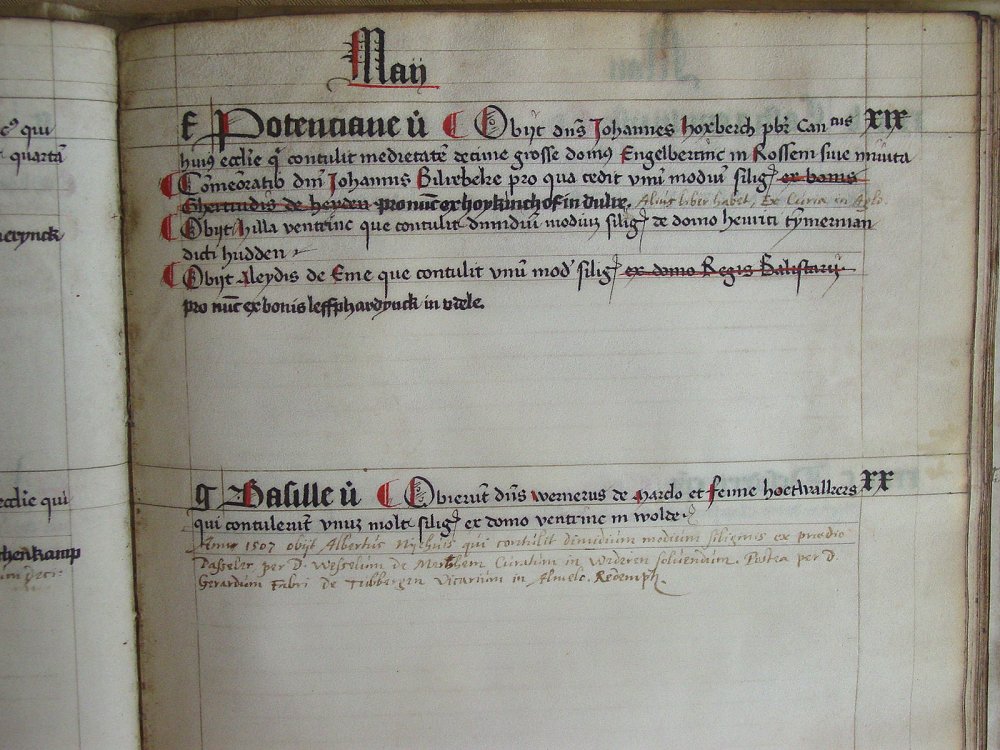 qui
quartā
nerynck
ecclie qui
chenkamp
Maij
f Potenciane v̄ Obijt dn̄s Johannes hoxberch pbr̄ Canctus XIX
huius ecclie q̄ contulit medietatē decime grosse domus Engelbertinc in Rossem siue minuta
Cōmemoratio dn̄i Johannis Bilrebeke pro qua cedit vnū modiū siliḡ ex bonis
Ghertrudis de heyden pro nūc ex hoykinchof in dulre. Alius liber habet, Ex Curia in Aplo.
Obijt hilla ventrinc que contulit dimidium modium siliḡ de domo henrici tymerman
dicti hudden
Obijt Aleydis de Eme que contulit vnū mod̄ siliḡ ex domo Regis Balistarij
pro nūc ex bonis leffhardynck in vrele.
g Basille v̄ Obierūt dn̄s wernerus de pardo et femme hoetwalkers XX
qui contulerūt vnuz molt siliḡ ex domo ventrinc in wolde
Anno 1507 obijt Albertus Nyehuis qui contulit dimidium modium siliginis ex prædio
Dasseler per D. Wesselum de Marthem Curatum in Wideren soluendum. Postea per D.
Gerardum Fabri de Tubbergen Vicarium in Almelo. Redempt.